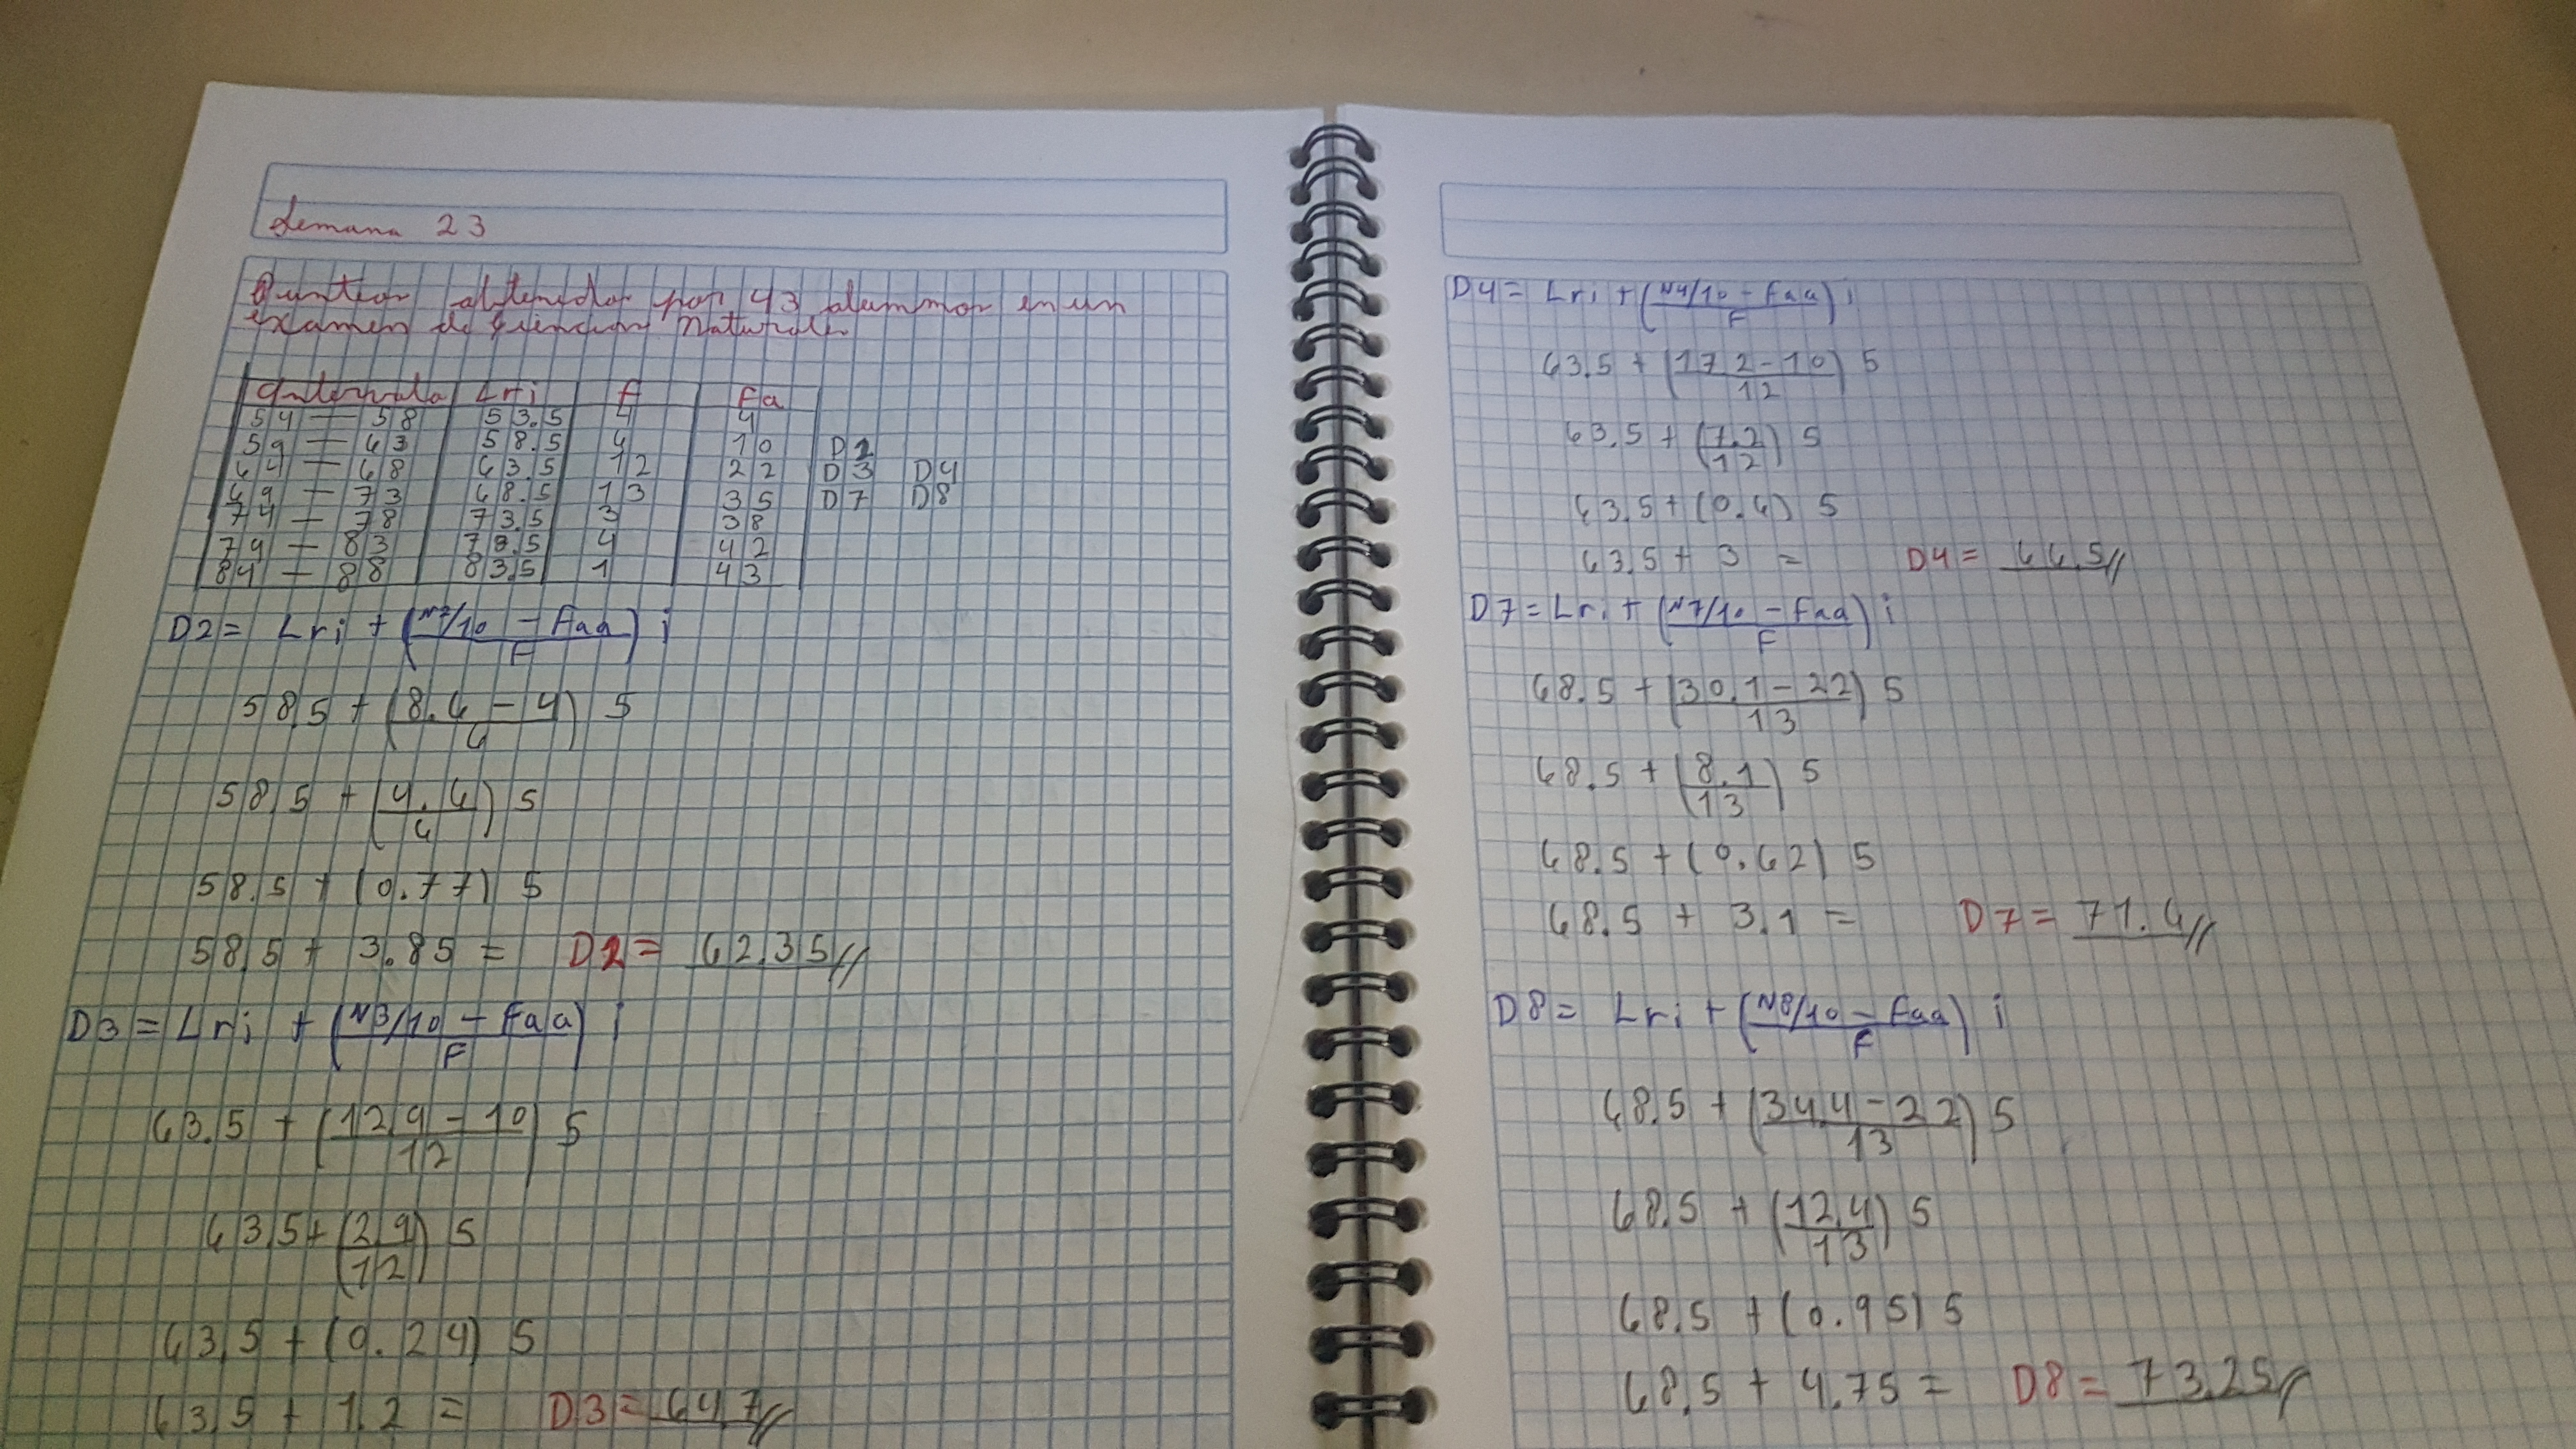 Semana 23
Punteos obtenidos por 43 alumnos en un
examen de Ciencias Naturales
Intervalo Lri f Fa
54 — 58 53.5 4 4
59 — 63 58.5 6 10 D2
64 — 68 63.5 12 22 D3 D4
69 — 73 68.5 13 35 D7 D8
74 — 78 73.5 3 38
79 — 83 78.5 4 42
84 — 88 83.5 1 43
D2 = Lri + (N2/10 - Faa / F) i
58.5 + (8.6 - 4 / 6) 5
58.5 + (4.6 / 6) 5
58.5 + (0.77) 5
58.5 + 3.85 = D2 = 62.35//
D3 = Lri + (N3/10 - Faa / F) i
63.5 + (12.9 - 10 / 12) 5
63.5 + (2.9 / 12) 5
63.5 + (0.24) 5
63.5 + 1.2 = D3 = 64.7//
D4 = Lri + (N4/10 - Faa / F) i
63.5 + (17.2 - 10 / 12) 5
63.5 + (7.2 / 12) 5
63.5 + (0.6) 5
63.5 + 3 = D4 = 66.5//
D7 = Lri + (N7/10 - Faa / F) i
68.5 + (30.1 - 22 / 13) 5
68.5 + (8.1 / 13) 5
68.5 + (0.62) 5
68.5 + 3.1 = D7 = 71.6//
D8 = Lri + (N8/10 - Faa / F) i
68.5 + (34.4 - 22 / 13) 5
68.5 + (12.4 / 13) 5
68.5 + (0.95) 5
68.5 + 4.75 = D8 = 73.25//